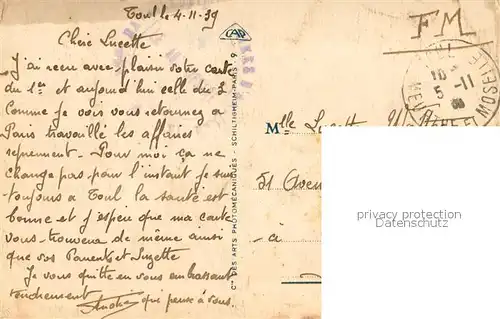 Toul le 4-11-39
Chère Lucette
J'ai reçu avec plaisir votre carte
du 1er et aujourd'hui celle du 2
Comme je vois vous retournez a
Paris travaillé les affaires
reprennent. Pour moi ça ne
change pas pour l'instant je suis
toujours a Toul la santé est
bonne et j'espere que ma carte
vous trouvera de même ainsi
que vos Parents et Suzette
Je vous quitte en vous embrassant
tendrement
André qui pense à vous.
CAP
Cie DES ARTS PHOTOMÉCANIQUES - SCHILTIGHEIM-PARIS 9
FM
5 -11
Melle Lucette
51 Aven
à
privacy protection
Datenschutz